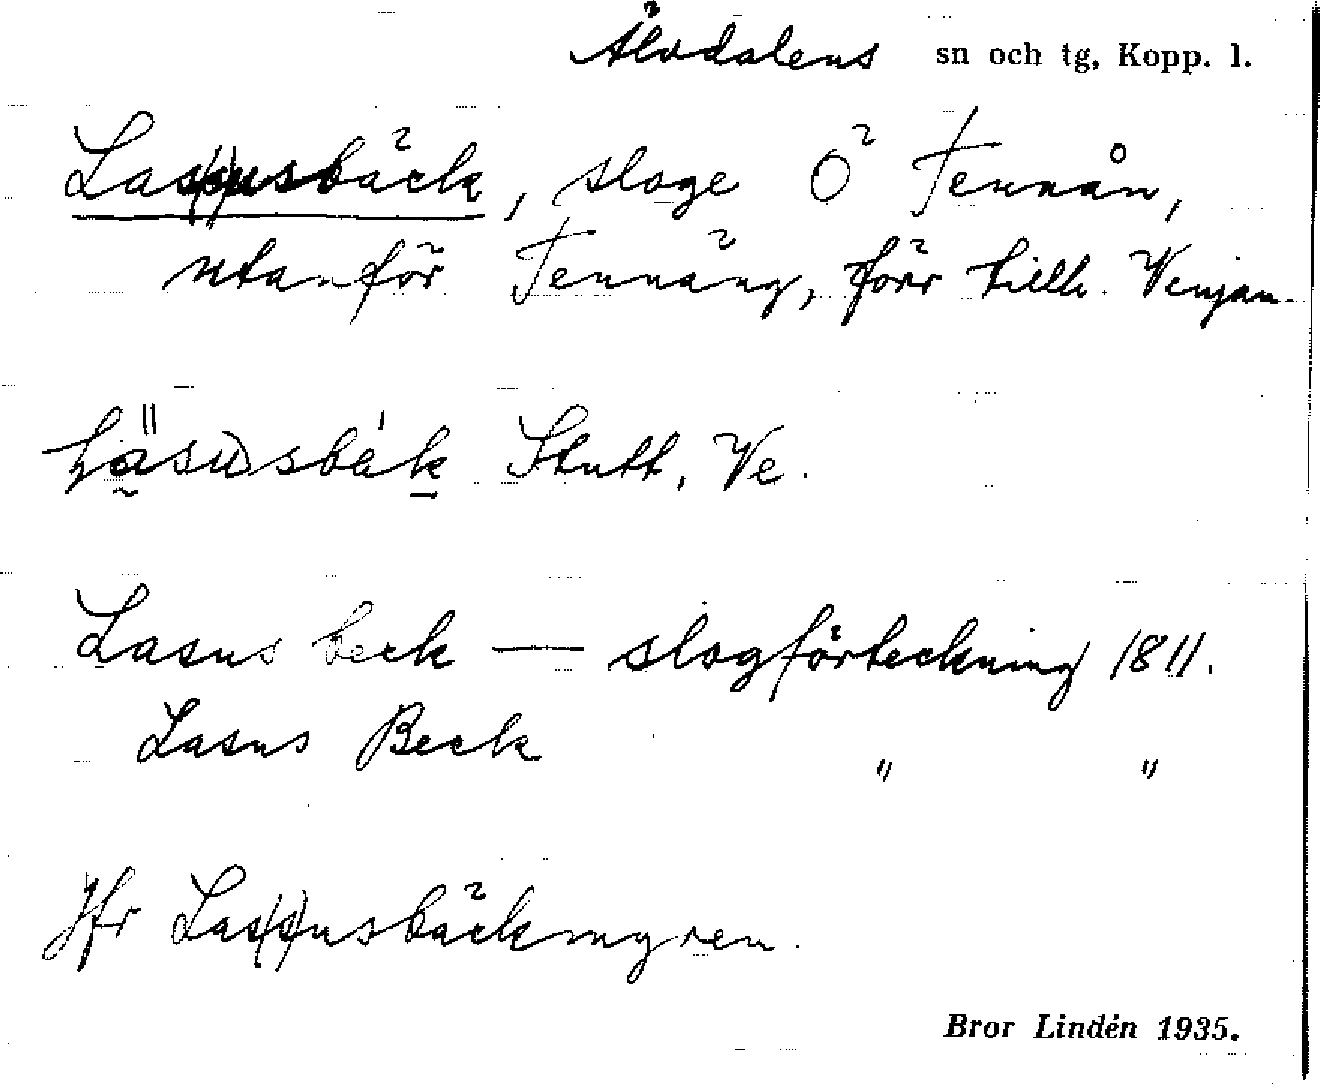 Älvdalens sn och tg, Kopp. l.
Las(s)usbäck, sloge Ö Tennån,
utanför Tennäng, förr tillh. Venjan.
Stutt, Ve.
Lasus beck — slogförteckning 1811.
Lasus Beck " "
Jfr Las(s)usbäckmyren.
Bror Lindén 1935.